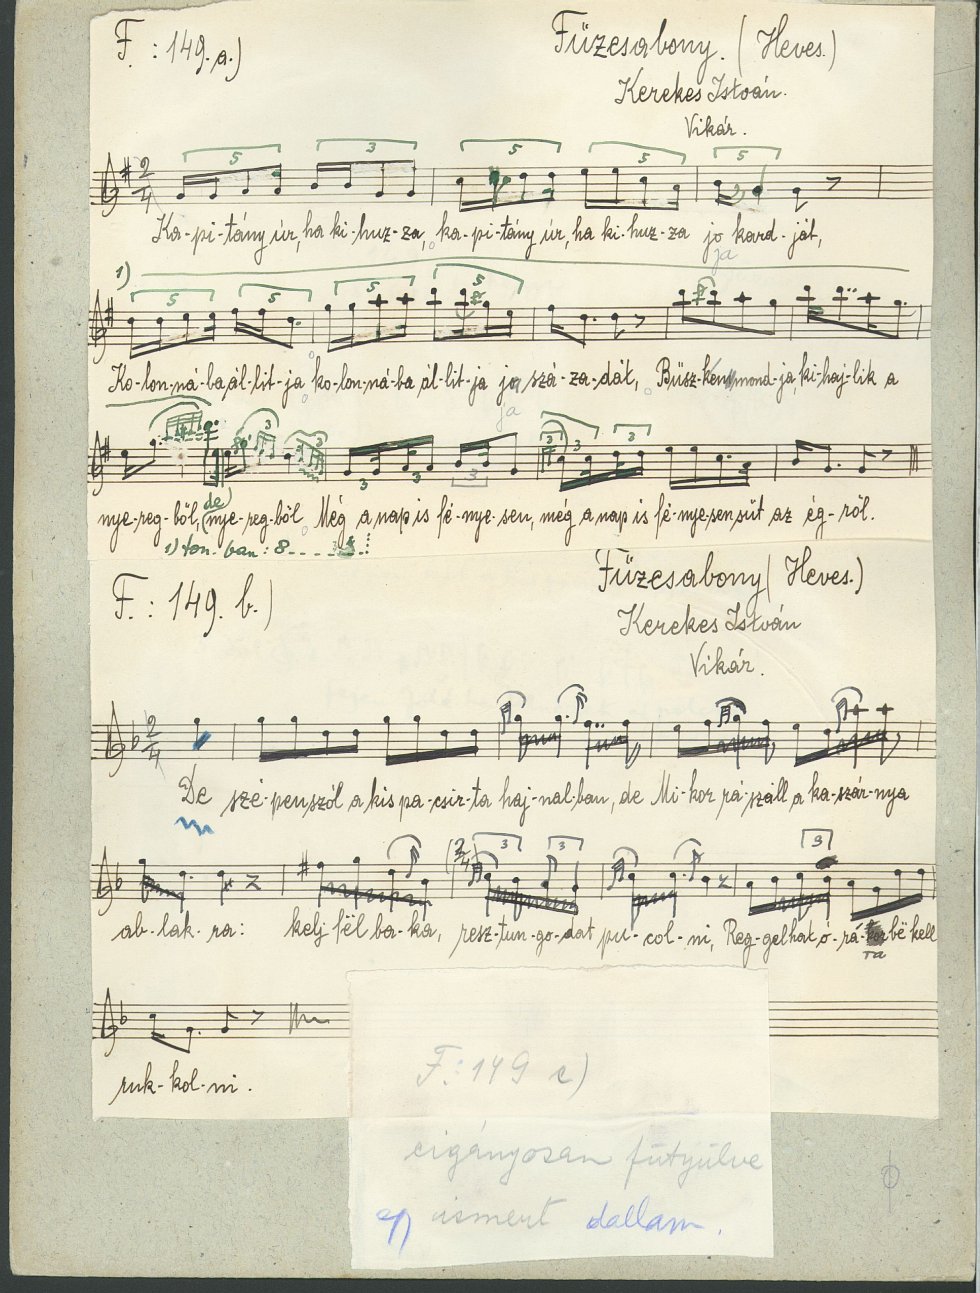 F. : 149. a.)
Füzesabony. (Heves.)
Kerekes István.
Vikár.
2/4
5 3 5 5 5
Ka-pi-tány úr, ha ki-huz-za, ka-pi-tány úr, ha ki-huz-za jo kard-ját,
ja
1)
5 5 5 5
Ko-lon-ná-ba ál-lit-ja ko-lon-ná-ba ál-lit-ja jo szá-za-dát, Büsz-kén mond-ja, ki-haj-lik a
ja
3 3 3 3 3 3 3 3
nye-reg-ből, (de) nye-reg-ből Még a nap is fé-nye-sen, még a nap is fé-nye-sen süt az ég-ről.
1) ton. ban: 8
F. : 149. b.)
Füzesabony (Heves.)
Kerekes István
Vikár.
2/4
De szé-pen szól a kis pa-csir-ta haj-nal-ban, de Mi-kor rá-száll a ka-szár-nya
(2/4) 3 3 3
ab-lak-ra: kelj fël ba-ka, resz-tun-go-dat pu-col-ni, Reg-gel hat ó-rá-kor bë këll
ra
ruk-kol-ni.
F.: 149 c)
cigányosan fütyülve
egy ismert dallam.